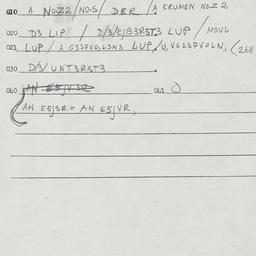 010 A NOZ2/NO.S/ DER /A KRUMEN NOZ2
020 D3 LIP / D/3/EJB3RST3 LUP / MOUL
021 LUP / A LUP /U, VGLS7VOLN, (268
030 D/3/ UNT3RST3
040 AN E5JV3R 041 O
AN E5J3R = AN E5JVR,